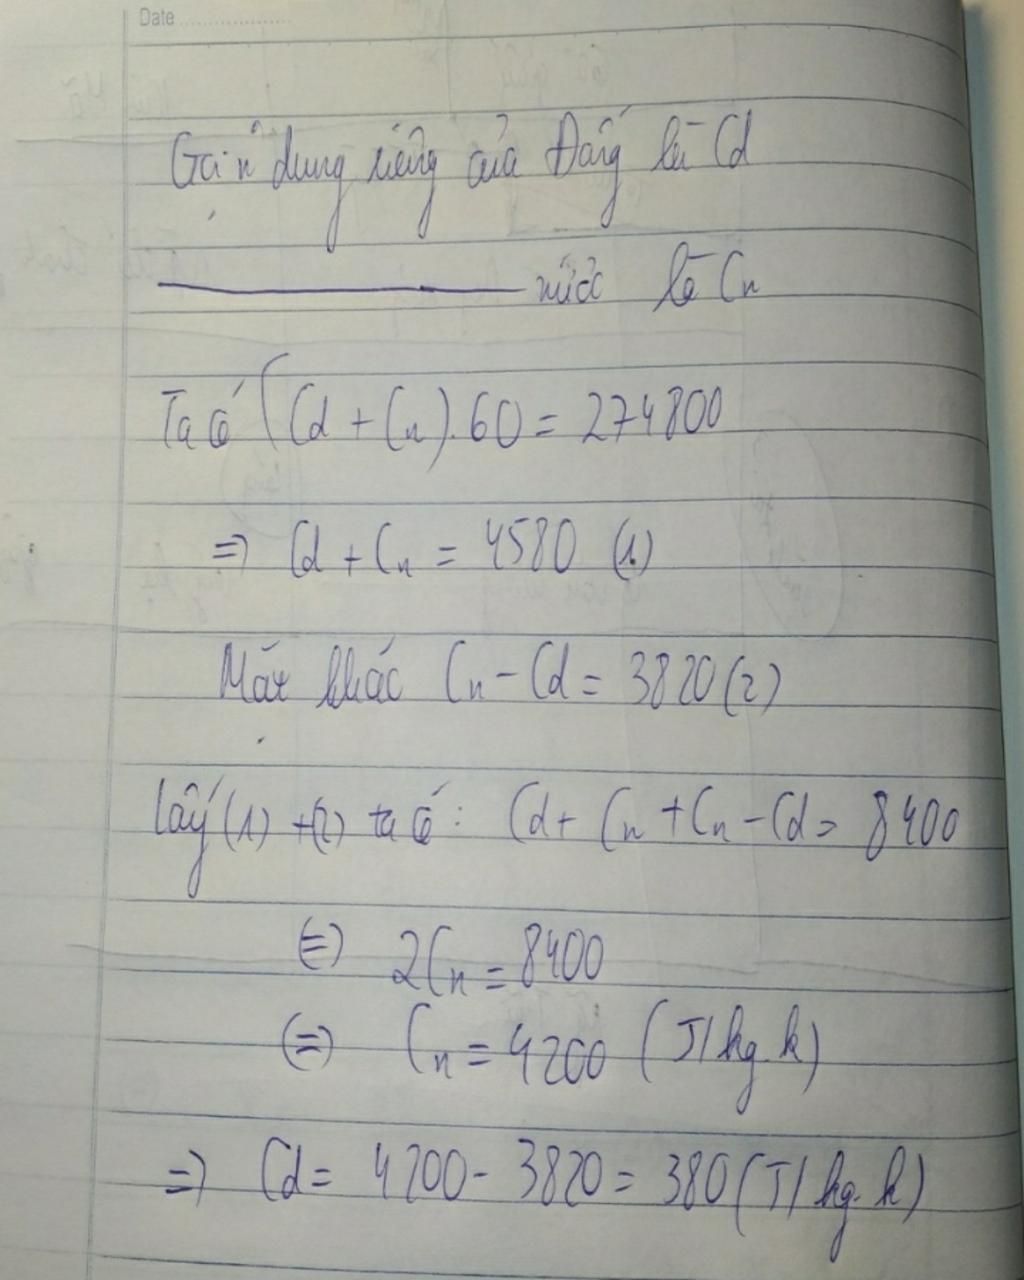 Date
Gọi n dung riêng của Đồng là Cd
nước là Cn
Ta có (Cd + Cn).60 = 274800
=> Cd + Cn = 4580 (1)
Mặt khác Cn - Cd = 3820 (2)
Lấy (1) + (2) ta có : Cd + Cn + Cn - Cd = 8400
(=) 2Cn = 8400
(=) Cn = 4200 (J/kg.k)
=> Cd = 4200 - 3820 = 380 (J/kg.k)